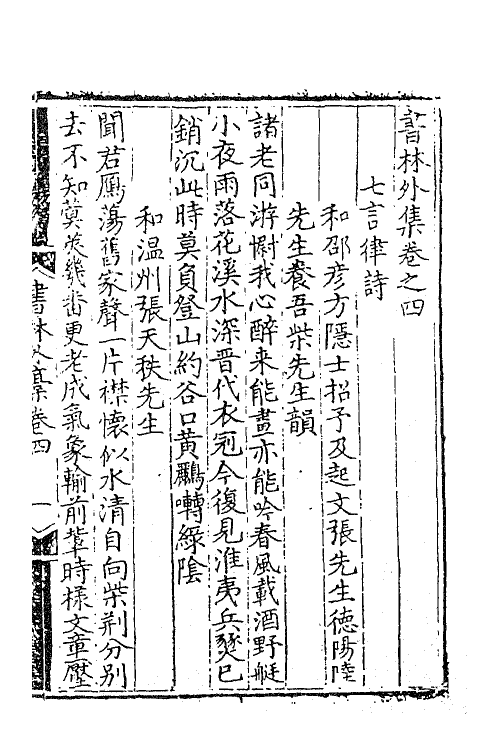 書林外集卷之四
七言律詩
和邵彥方隱士招予及起文張先生德陽陸
先生養吾柴先生韻
諸老同游慰我心醉来能畫亦能吟春風載酒野艇
小夜雨落花溪水深晋代衣冠今復見淮夷兵燹已
銷沉此時莫負登山約谷口黄鸝囀綠陰
和温州張天秩先生
聞君鴈蕩舊家聲一片襟懷似水清自向柴荆分别
去不知蓂莢幾畨更老成氣象輸前軰時樣文章壓
書林外集卷四 一